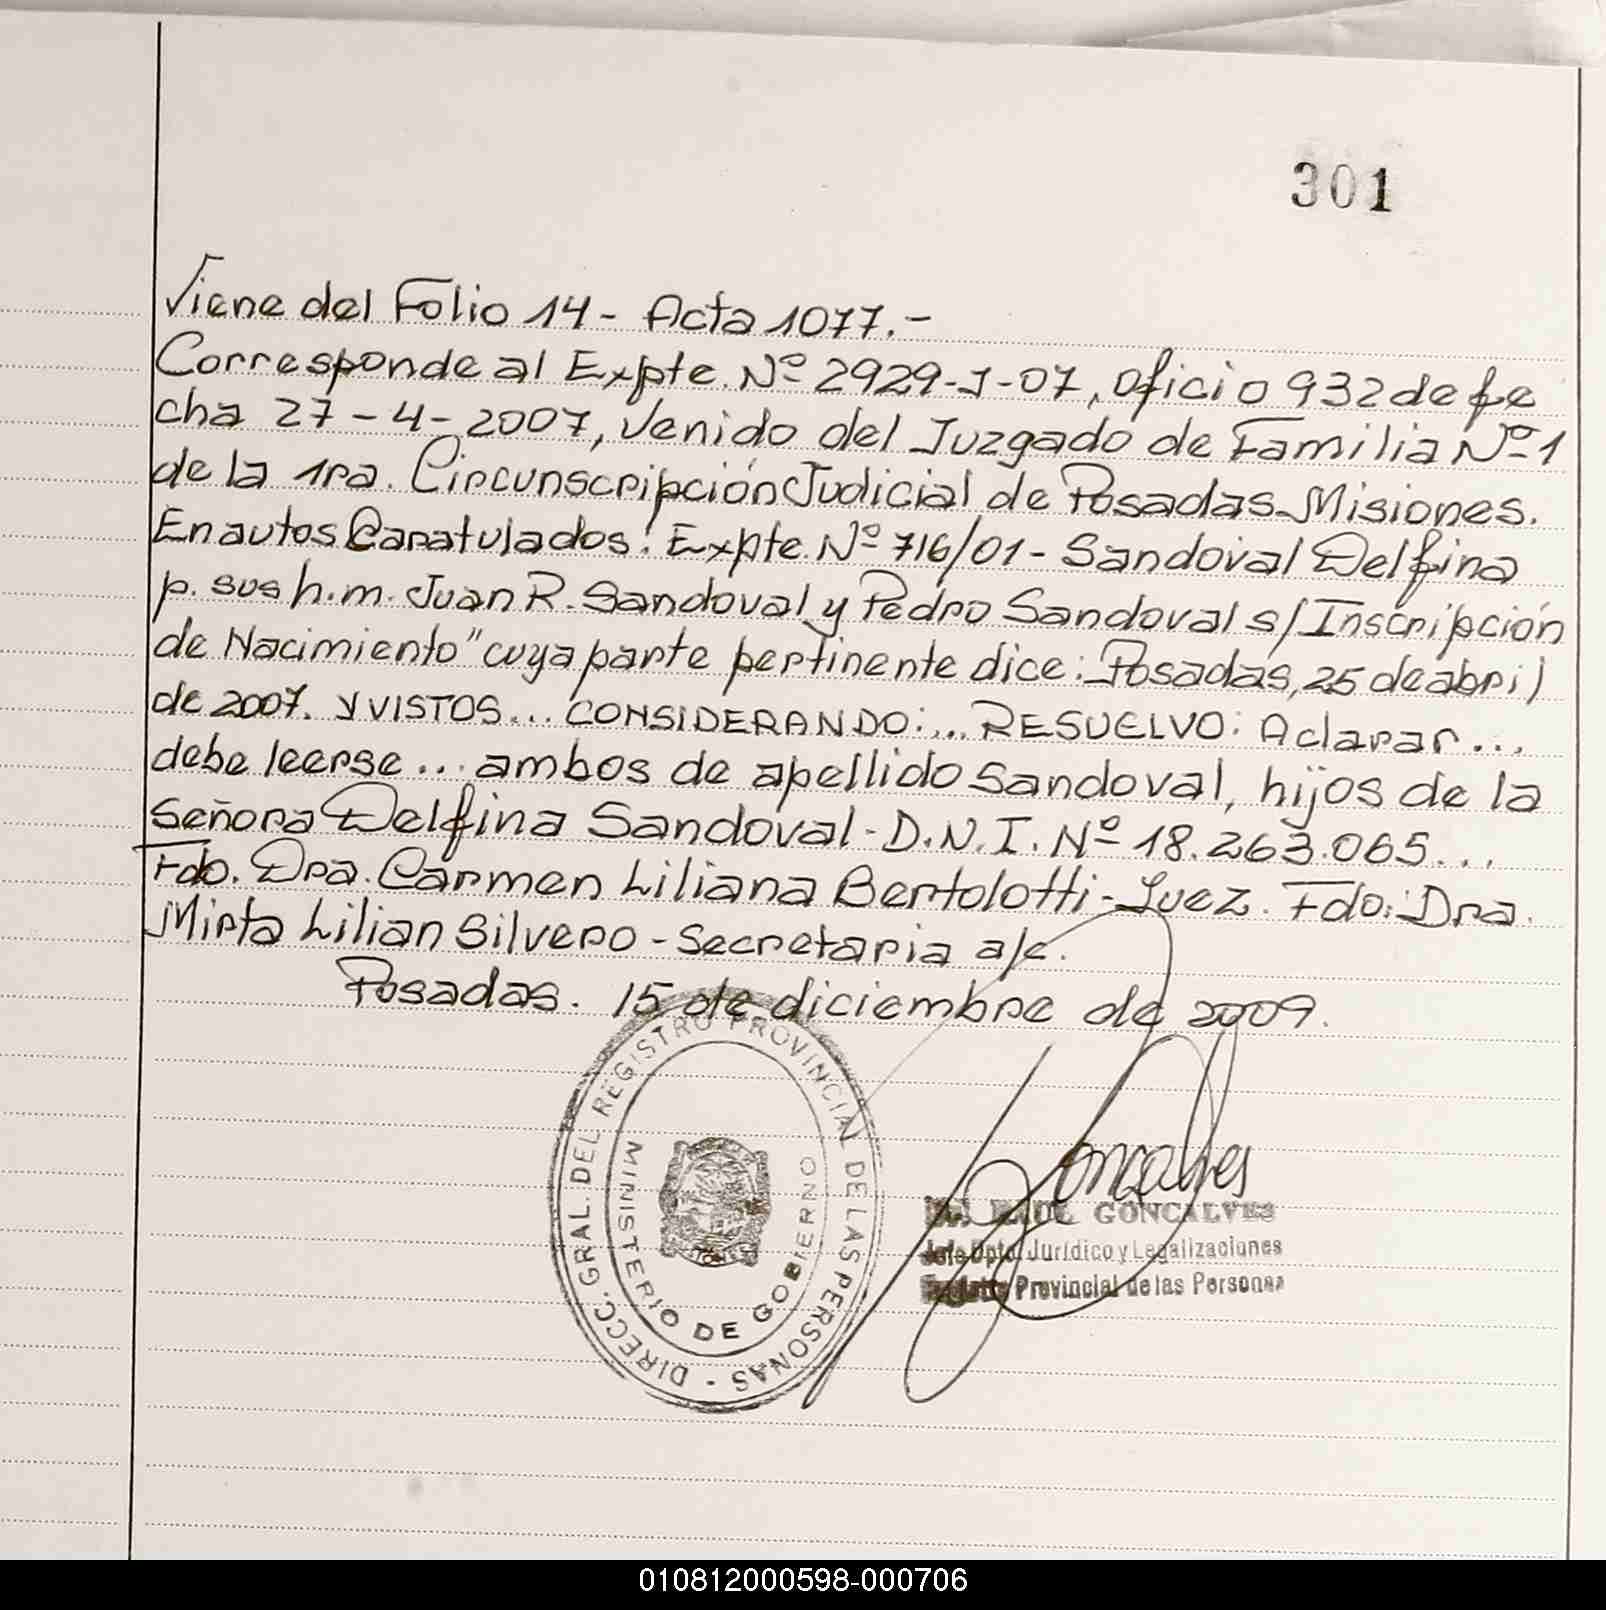 301
Viene del Folio 14 - Acta 1077.-
Corresponde al Expte. Nº 2929-J-07, Oficio 932 de fe
cha 27-4-2007, Venido del Juzgado de Familia Nº 1
de la 1ra. Circunscripción Judicial de Posadas-Misiones.
En autos Caratulados: Expte. Nº 716/01 - Sandoval Delfina
p. sus h.m. Juan R. Sandoval y Pedro Sandoval s/Inscripción
de Nacimiento" cuya parte pertinente dice: Posadas, 25 de abril
de 2007. Y VISTOS... CONSIDERANDO:... RESUELVO: Aclarar...
debe leerse... ambos de apellido Sandoval, hijos de la
Señora Delfina Sandoval - D.N.I. Nº 18.263.065...
Fdo. Dra. Carmen Liliana Bertolotti - Juez. Fdo: Dra.
Mirta Lilian Silvero - Secretaria a/c.
Posadas. 15 de diciembre de 2009.
DIRECC. GRAL. DEL REGISTRO PROVINCIAL DE LAS PERSONAS -
MINISTERIO DE GOBIERNO
Goncalves
RAUL GONCALVES
Jefe Dpto. Jurídico y Legalizaciones
Provincial de las Personas
010812000598-000706